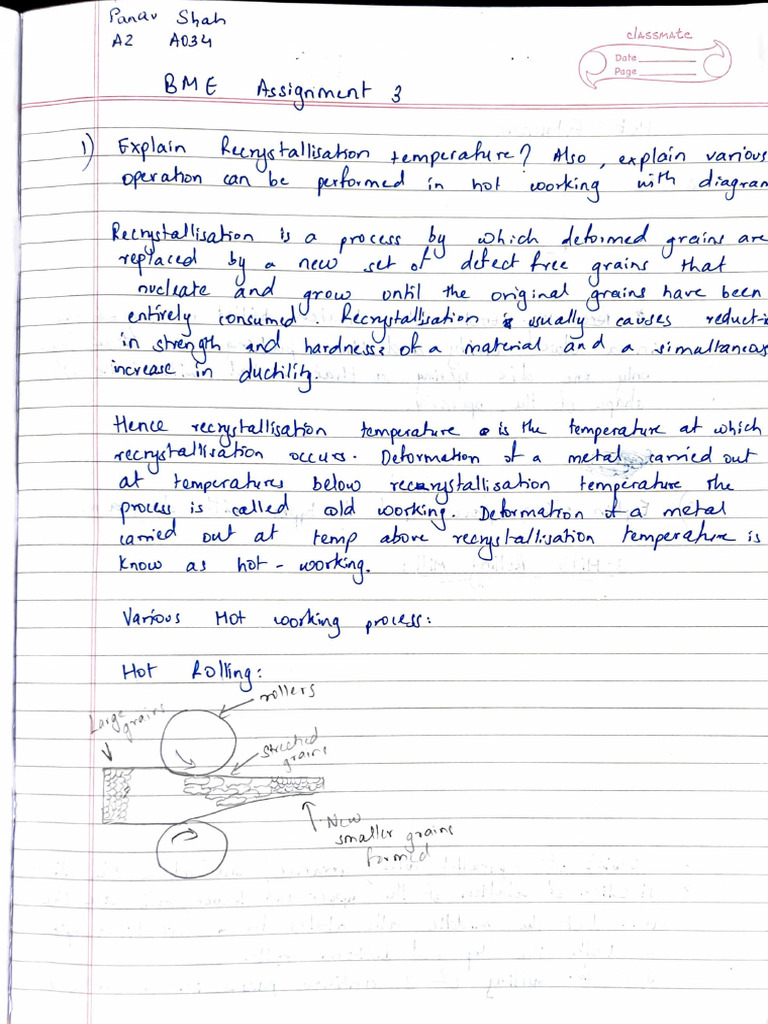 Panav Shah
A2 A034
classmate
Date
Page
BME Assignment 3
1) Explain Recrystallisation temperature? Also, explain various
operation can be performed in hot working with diagram
Recrystallisation is a process by which deformed grains are
replaced by a new set of defect free grains that
nucleate and grow until the original grains have been
entirely consumed. Recrystallisation is usually causes reducti
in strength and hardness of a material and a simultaneous
increase in ductility.
Hence recrystallisation temperature is the temperature at which
recrystallisation occurs. Deformation of a metal carried out
at temperatures below recrystallisation temperature the
process is called cold working. Deformation of a metal
carried out at temp above recrystallisation temperature is
know as hot-working.
Various Hot working process:
Hot Rolling:
rollers
Large
grains
streched
grains
New
smaller grains
formed